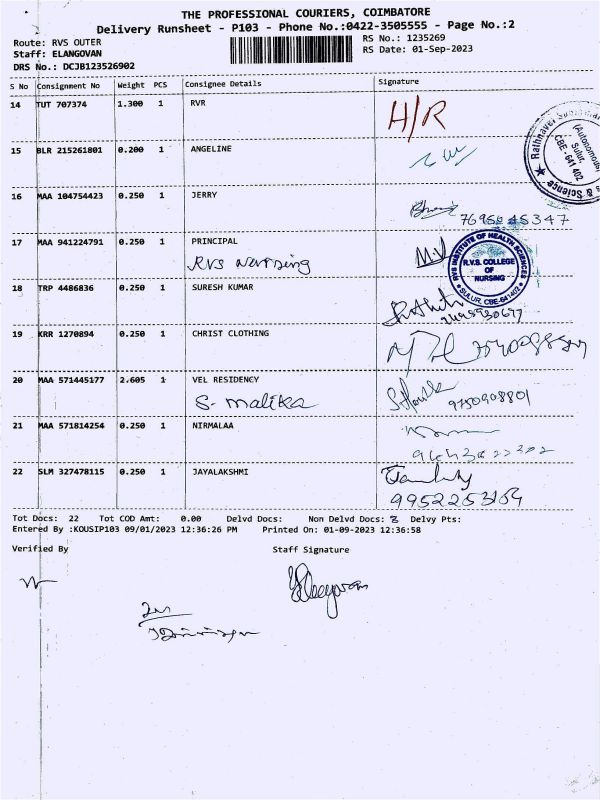 THE PROFESSIONAL COURIERS, COIMBATORE
Delivery Runsheet - P103 - Phone No.:0422-3505555 - Page No.:2
Route: RVS OUTER
RS No.: 1235269
Staff: ELANGOVAN
RS Date: 01-Sep-2023
DRS No.: DCJB123526902
S No Consignment No Weight PCS Consignee Details Signature
14 TUT 707374 1.300 1 RVR H/R
15 BLR 215261801 0.200 1 ANGELINE
(Autonomous)
Sulur,
CBE - 641 402
& Science
16 MAA 104754423 0.250 1 JERRY
17 MAA 941224791 0.250 1 PRINCIPAL
RVS Nursing
M.V
RVS INSTITUTE OF HEALTH SCIENCES
R.V.S. COLLEGE
OF
NURSING
SULUR, CBE-641402
18 TRP 4486836 0.250 1 SURESH KUMAR
19 KRR 1270894 0.250 1 CHRIST CLOTHING
20 MAA 571445177 2.605 1 VEL RESIDENCY
S. Malika
9750908801
21 MAA 571814254 0.250 1 NIRMALAA
22 SLM 327478115 0.250 1 JAYALAKSHMI
9952253164
Tot Docs: 22 Tot COD Amt: 0.00 Delvd Docs: Non Delvd Docs: Delvy Pts:
Entered By :KOUSIP103 09/01/2023 12:36:26 PM Printed On: 01-09-2023 12:36:58
Verified By Staff Signature